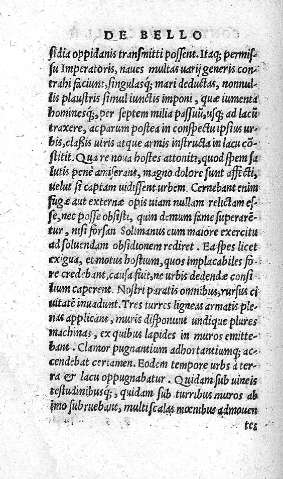 DE BELLO
sidia oppidanis transmitti possent. Itaq; permis-
su Imperatoris, naues multas varij generis con-
trahi faciunt, singulasq; mari deductas, nonnul-
lis plaustris simul iunctis imponi, quæ iumenta
hominesq;, per septem milia passuũ, usq; ad lacũ
traxere, ac parum postea in conspectu ipsius ur-
bis, classis uiris atque armis instructa in lacu cõ-
stitit. Qua re noua hostes attoniti, quod spem sa-
lutis pene amiserant, magno dolore sunt affecti,
uelut si captam uidissent urbem. Cernebant enim
fugæ aut externæ opis uiam nullam relictam es-
se, nec posse obsisti, quin demum fame superarẽ-
tur, nisi forsan Solimanus cum maiore exercitu
ad soluendam obsidionem rediret. Ea spes licet
exigua, et motus hostium, quos implacabiles fo-
re credebant, causa fuit, ne urbis dedendæ consi-
lium caperent. Nostri paratis omnibus, rursus ci
uitatẽ inuadunt. Tres turres ligneas armatis ple-
nas applicant, muris disponunt undique plures
machinas, ex quibus lapides in muros emitte-
bant. Clamor pugnantium adhortantiumq; ac-
cendebat certamen. Eodem tempore urbs a ter-
ra & lacu oppugnabatur. Quidam sub uineis
testudinibusq;, quidam sub turribus muros ab
imo subruebant, multi scalas mœnibus admouen
tes